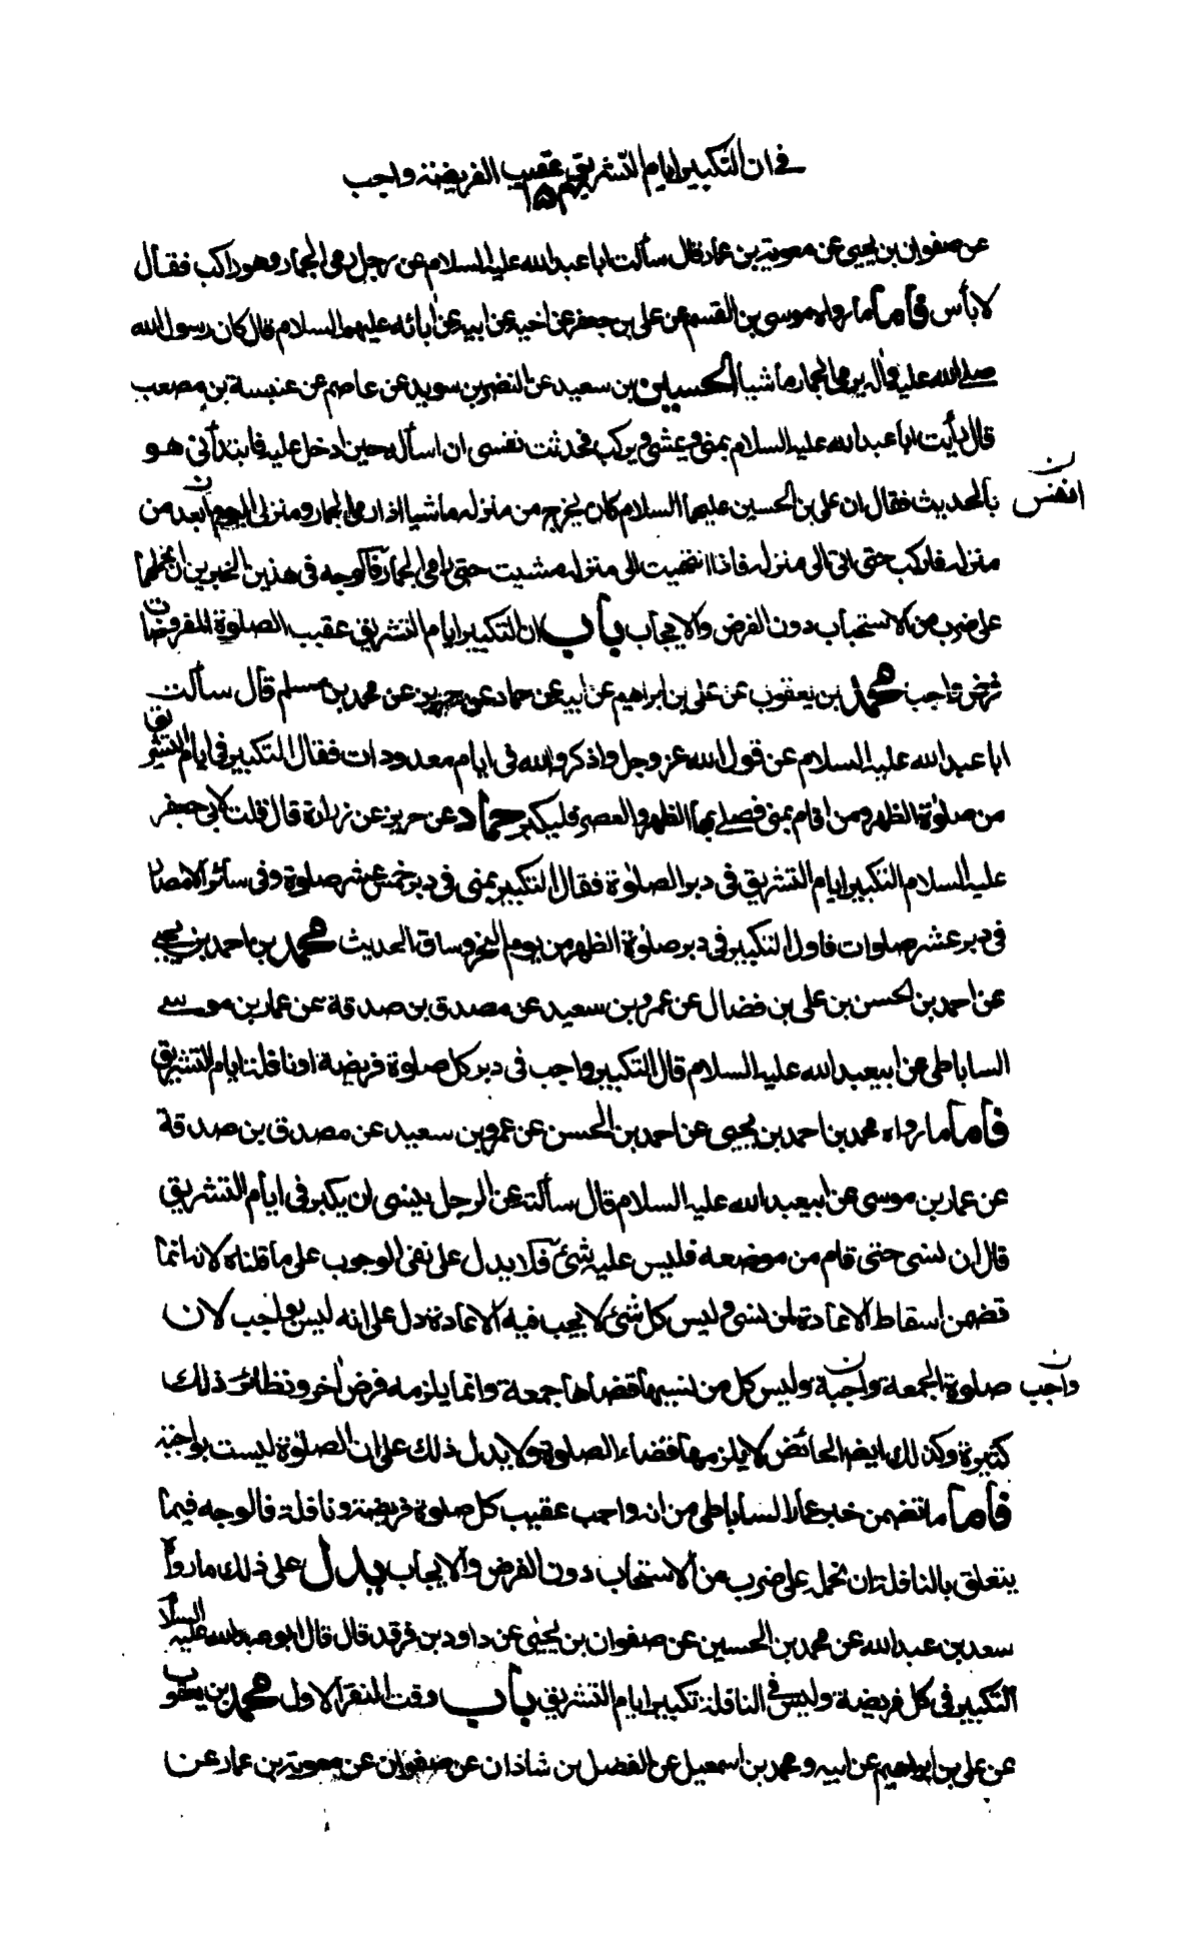 في ان التكبير ايام التشريق عقيب الفريضة واجب
عن صفوان بن يحيى عن معوية بن عمار قال سألت ابا عبد الله عليه السلام عن رجل رمى الجمار وهو راكب فقال
لا بأس فأما ما رواه موسى بن القسم عن على بن جعفر عن اخيه عن ابيه عن آبائه عليهم السلام قال كان رسول الله
صلى الله عليه وآله يرمى الجمار ماشيا الحسين بن سعيد عن النضر بن سويد عن عاصم عن عنبسة بن مصعب
قال رأيت ابا عبد الله عليه السلام بمنى يمشى ويركب فحدثت نفسى ان اسأله حين ادخل عليه فابتدأنى هو
بالحديث فقال ان على بن الحسين عليهما السلام كان يخرج من منزله ماشيا اذا رمى الجمار ومنزلى اليوم ابعد من
منزله فاركب حتى اتى الى منزله فاذا انتهيت الى منزله مشيت حتى ارمى الجمار فالوجه فى هذين الخبرين ان نحملهما
على ضرب من الاستحباب دون الفرض والايجاب باب ان التكبير ايام التشريق عقيب الصلوة المفروضات
فرض واجب محمد بن يعقوب عن على بن ابراهيم عن ابيه عن حماد عن حريز عن محمد بن مسلم قال سألت
ابا عبد الله عليه السلام عن قول الله عز وجل واذكروا الله فى ايام معدودات فقال التكبير فى ايام التشريق
من صلوة الظهر ومن اقام بمنى فصلى بها الظهر والعصر فليكبر حماد عن حريز عن زرارة قال قلت لابى جعفر
عليه السلام التكبير ايام التشريق فى دبر الصلوة فقال التكبير بمنى فى دبر خمس عشر صلوة وفى سائر الامصار
فى دبر عشر صلوات فاول التكبير فى دبر صلوة الظهر من يوم النحر وساق الحديث محمد بن احمد بن يحيى
عن احمد بن الحسن بن على بن فضال عن عمرو بن سعيد عن مصدق بن صدقة عن عمار بن موسى
الساباطى عن ابيعبد الله عليه السلام قال التكبير واجب فى دبر كل صلوة فريضة او نافلة ايام التشريق
فأما ما رواه محمد بن احمد بن يحيى عن احمد بن الحسن عن عمرو بن سعيد عن مصدق بن صدقة
عن عمار بن موسى عن ابيعبد الله عليه السلام قال سألته عن الرجل ينسى ان يكبر فى ايام التشريق
قال ان نسى حتى قام من موضعه فليس عليه شئ فلا يدل على نفى الوجوب على ما قلناه لانه انما
تضمن اسقاط الاعادة لمن نسى وليس كل شئ لا يجب فيه الاعادة دل على انه ليس بواجب لان
واجب صلوة الجمعة واجبة وليس كل من نسيها قضاها جمعة وانما يلزمه فرض آخر ونظائر ذلك
كثيرة وكذلك ايضا الحائض لا يلزمها قضاء الصلوة ولا يدل ذلك على ان الصلوة ليست بواجبة
فأما ما تضمن خبر عمار الساباطى من انه واجب عقيب كل صلوة فريضة ونافلة فالوجه فيما
يتعلق بالنافلة ان نحمله على ضرب من الاستحباب دون الفرض والايجاب يدل على ذلك ما رواه
سعد بن عبد الله عن محمد بن الحسين عن صفوان بن يحيى عن داود بن فرقد قال قال ابو عبد الله عليه السلام
التكبير فى كل فريضة وليس فى النافلة تكبير ايام التشريق باب وقت النفر الاول محمد بن يعقوب
عن على بن ابراهيم عن ابيه ومحمد بن اسمعيل عن الفضل بن شاذان عن صفوان عن معوية بن عمار عن